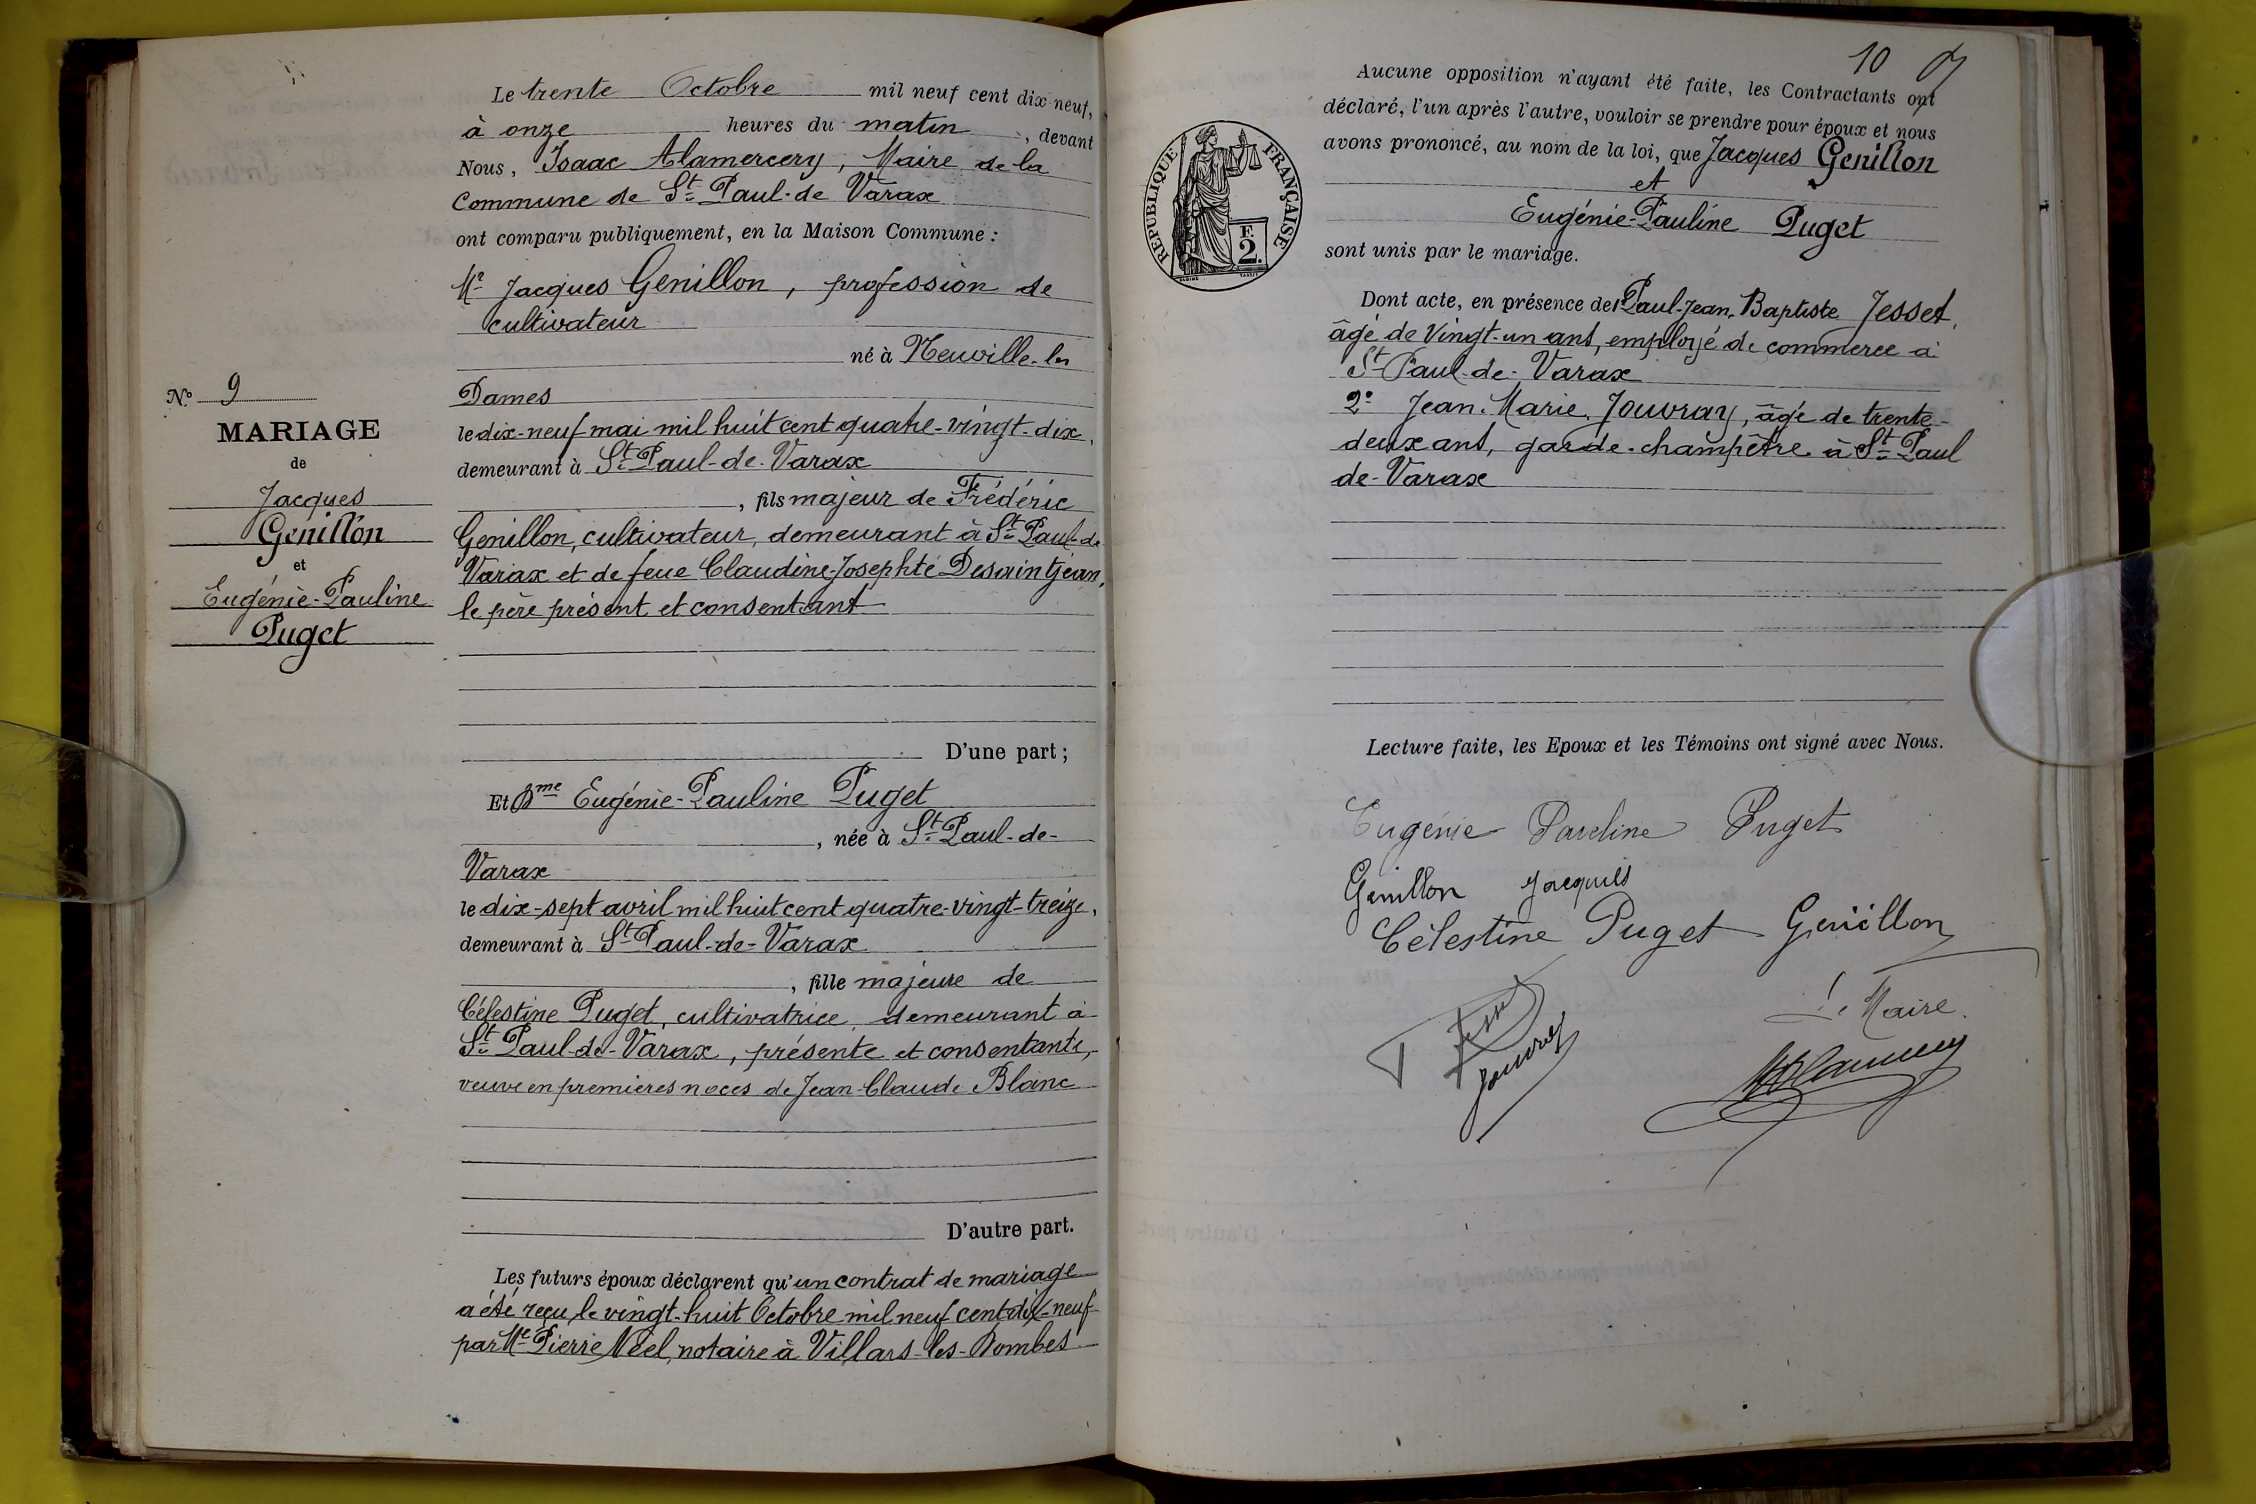 Le trente Octobre mil neuf cent dix-neuf,
à onze heures du matin, devant
Nous, Isaac Alamercery, Maire de la
Commune de St Paul-de Varax
ont comparu publiquement, en la Maison Commune :
Mr Jacques Genillon, profession de
cultivateur
né à Neuville-les
Dames
le dix-neuf mai mil huit cent quatre-vingt-dix,
demeurant à St Paul-de-Varax
, fils majeur de Frédéric
Genillon, cultivateur, demeurant à St Paul-de
Varax et de feue Claudine-Josephte Desaintjean,
le père présent et consentant
D'une part ;
Et Dme Eugénie-Pauline Puget
, née à St Paul-de-
Varax
le dix-sept avril mil huit cent quatre-vingt-treize,
demeurant à St Paul-de-Varax
, fille majeure de
Célestine Puget, cultivatrice, demeurant à
St Paul-de-Varax, présente et consentante,
veuve en premières noces de Jean-Claude Blanc
D'autre part.
Les futurs époux déclarent qu'un contrat de mariage
a été reçu le vingt-huit Octobre mil neuf cent dix-neuf
par Me Pierre Néel, notaire à Villars-les-Dombes
No 9
MARIAGE
de
Jacques
Genillon
et
Eugénie-Pauline
Puget
10
Aucune opposition n'ayant été faite, les Contractants ont
déclaré, l'un après l'autre, vouloir se prendre pour époux et nous
avons prononcé, au nom de la loi, que Jacques Genillon
et
Eugénie-Pauline Puget
sont unis par le mariage.
RÉPUBLIQUE FRANÇAISE
F.
2.
Dont acte, en présence de 1° Paul-Jean-Baptiste Jesset,
âgé de vingt-un ans, employé de commerce à
St Paul-de-Varax
2° Jean-Marie Jouvray, âgé de trente-
deux ans, garde-champêtre à St Paul
de-Varax
Lecture faite, les Epoux et les Témoins ont signé avec Nous.
Eugénie Pauline Puget
Genillon Jacques
Célestine Puget Genillon
Jesset
Jouvray
Le Maire
Alamercery